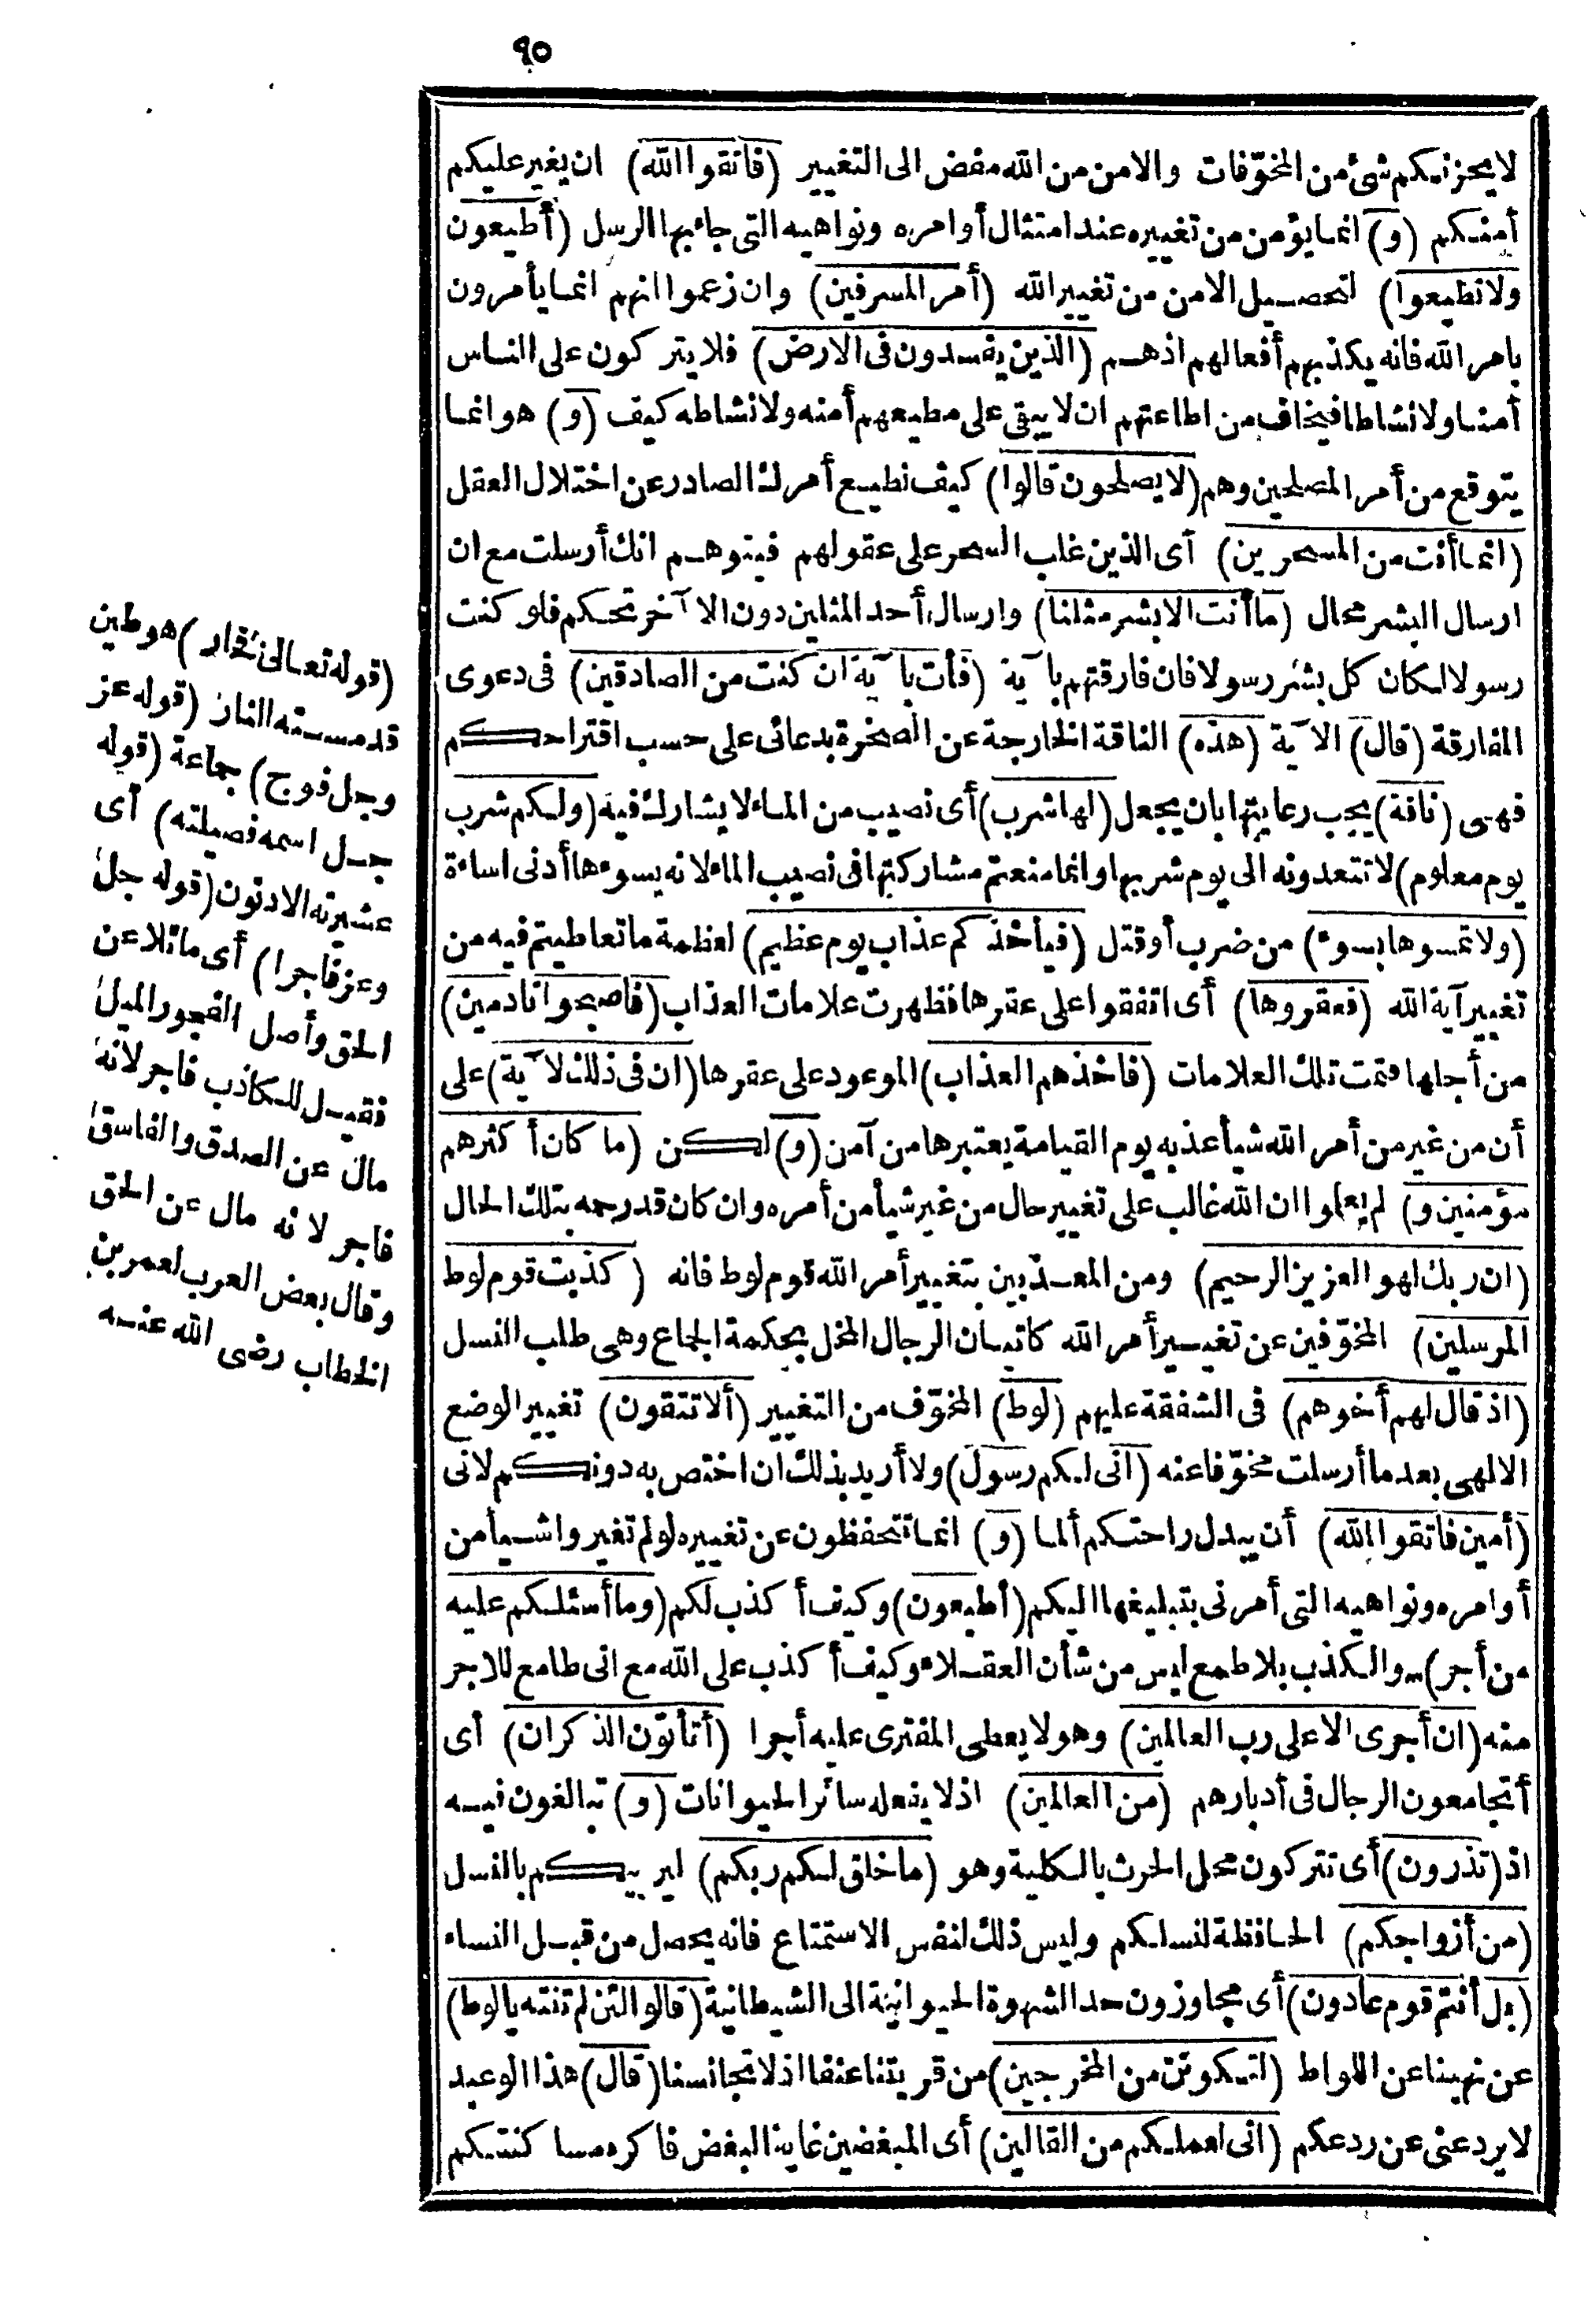 ٩٥
لا يحزنكم شئ من المخوّفات والامن من الله مفض الى التغيير (فاتقوا الله) ان يغير عليكم
أمنكم (و) انما يؤمن من تغييره عند امتثال أوامره ونواهيه التى جاء بها الرسل (أطيعون
ولا تطيعوا) لتحصيل الامن من تغيير الله (أمر المسرفين) وان زعموا انهم انما يأمرون
بامر الله فانه يكذبهم أفعالهم اذ هم (الذين يفسدون فى الارض) فلا يتركون على الناس
أمنا ولا نشاطا فيخاف من اطاعتهم ان لا يبقى على مطيعهم أمنه ولا نشاطه كيف (و) هو انما
يتوقع من أمر المصلحين وهم (لا يصلحون قالوا) كيف نطيع أمرك الصادر عن اختلال العقل
(انما أنت من المسحرين) أى الذين غلب السحر على عقولهم فيتوهم انك أرسلت مع ان
ارسال البشر محال (ما أنت الا بشر مثلنا) وارسال أحد المثلين دون الآخر تحكم فلو كنت
رسولا لكان كل بشر رسولا فان فارقتهم بآية (فأت بآية ان كنت من الصادقين) فى دعوى
المفارقة (قال) الآية (هذه) الناقة الخارجة عن الصخرة بدعائى على حسب اقتراحكم
فهى (ناقة) يجب رعايتها بان يجعل (لها شرب) أى نصيب من الماء لا يشارك فيه (ولكم شرب
يوم معلوم) لا تتعدونه الى يوم شربها وانما منعتم مشاركتها فى نصيب الماء لانه يسوءها أدنى اساءة
(ولا تمسوها بسوء) من ضرب أو قتل (فيأخذكم عذاب يوم عظيم) لعظمة ما تعاطيتم فيه من
تغيير آية الله (فعقروها) أى اتفقوا على عقرها فظهرت علامات العذاب (فاصبحوا نادمين)
من أجلها فتمت تلك العلامات (فاخذهم العذاب) الموعود على عقرها (ان فى ذلك لآية) على
أن من غير من أمر الله شيأ عذبه يوم القيامة يعتبرها من آمن (و) لكن (ما كان أكثرهم
مؤمنين و) لم يعلموا ان الله غالب على تغيير حال من غير شيأ من أمره وان كان قد رحمه بتلك الحال
(ان ربك لهو العزيز الرحيم) ومن المعذبين بتغيير أمر الله قوم لوط فانه (كذبت قوم لوط
المرسلين) المخوّفين عن تغيير أمر الله كاتيان الرجال المخل بحكمة الجماع وهى طلب النسل
(اذ قال لهم أخوهم) فى الشفقة عليهم (لوط) المخوّف من التغيير (ألا تتقون) تغيير الوضع
الالهى بعد ما أرسلت مخوّفا عنه (انى لكم رسول) ولا أريد بذلك ان اختص به دونكم لانى
(أمين فاتقوا الله) أن يبدل راحتكم ألما (و) انما تتحفظون عن تغييره لو لم تغيروا شيأ من
أوامره ونواهيه التى أمرنى بتبليغها اليكم (أطيعون) وكيف أكذب لكم (وما أسئلكم عليه
من أجر) والكذب بلا طمع ليس من شأن العقلاء وكيف أكذب على الله مع انى طامع للاجر
منه (ان أجرى الا على رب العالمين) وهو لا يعطى المفترى عليه أجرا (أتأتون الذكران) أى
أتجامعون الرجال فى أدبارهم (من العالمين) اذ لا يفعله سائر الحيوانات (و) تبالغون فيه
اذ (تذرون) أى تتركون محل الحرث بالكلية وهو (ما خلق لكم ربكم) ليربيكم بالنسل
(من أزواجكم) الحافظة لنسلكم وليس ذلك لنفس الاستمتاع فانه يحصل من قبل النساء
(بل أنتم قوم عادون) أى مجاوزون حد الشهوة الحيوانية الى الشيطانية (قالوا لئن لم تنته يا لوط)
عن نهينا عن اللواط (لتكونن من المخرجين) من قريتنا عنفا اذ لا تجانسنا (قال) هذا الوعيد
لا يردعنى عن ردعكم (انى لعملكم من القالين) أى المبغضين غاية البغض فا كره مساكنتكم
(قوله تعالى فخار) هو طين
قد مسته النار (قوله عز
وجل فوج) جماعة (قوله
جل اسمه فصيلته) أى
عشيرته الادنون (قوله جل
وعز فاجرا) أى مائلا عن
الحق وأصل الفجور الميل
فقيل للكاذب فاجر لانه
مال عن الصدق والفاسق
فاجر لانه مال عن الحق
وقال بعض العرب لعمر بن
الخطاب رضى الله عنه